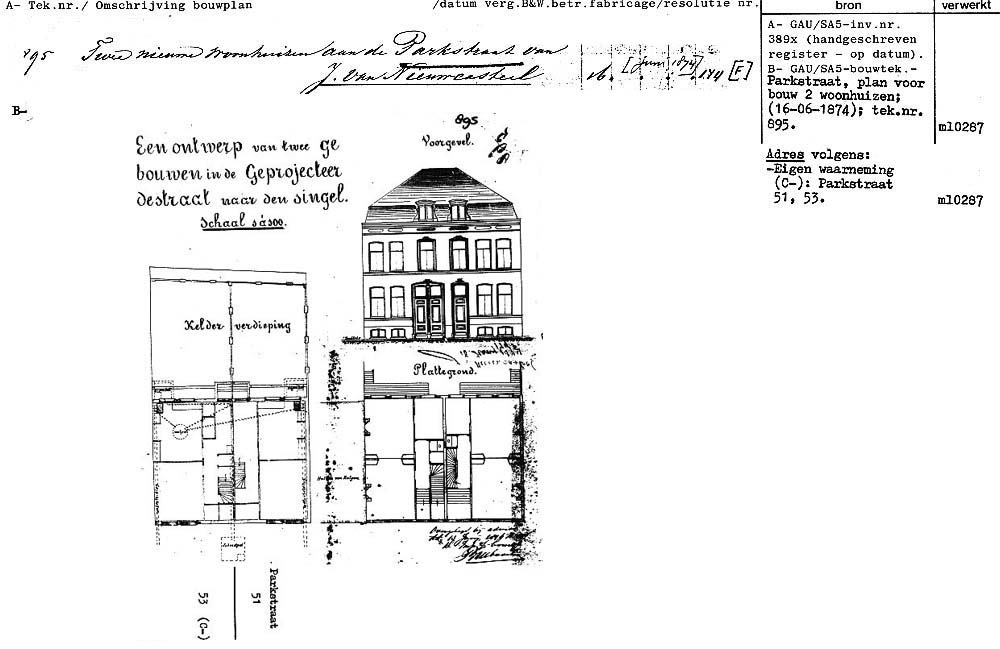 A- Tek.nr./ Omschrijving bouwplan /datum verg.B&W.betr.fabricage/resolutie nr. bron verwerkt
895 Twee nieuwe woonhuizen aan de Parkstraat van
J. van Nieuwcasteel 16. [Juni 1874] 174 [F]
A- GAU/SA5-inv.nr.
389x (handgeschreven
register - op datum).
B- GAU/SA5-bouwtek.-
Parkstraat, plan voor
bouw 2 woonhuizen;
(16-06-1874); tek.nr.
895. m10287
Adres volgens:
-Eigen waarneming
(C-): Parkstraat
51, 53. m10287
B-
Een ontwerp van twee ge
bouwen in de Geprojecteer
destraat naar den singel.
Schaal
895
Voorgevel.
Kelder verdieping
Plattegrond.
Parkstraat
51
53 (C-)